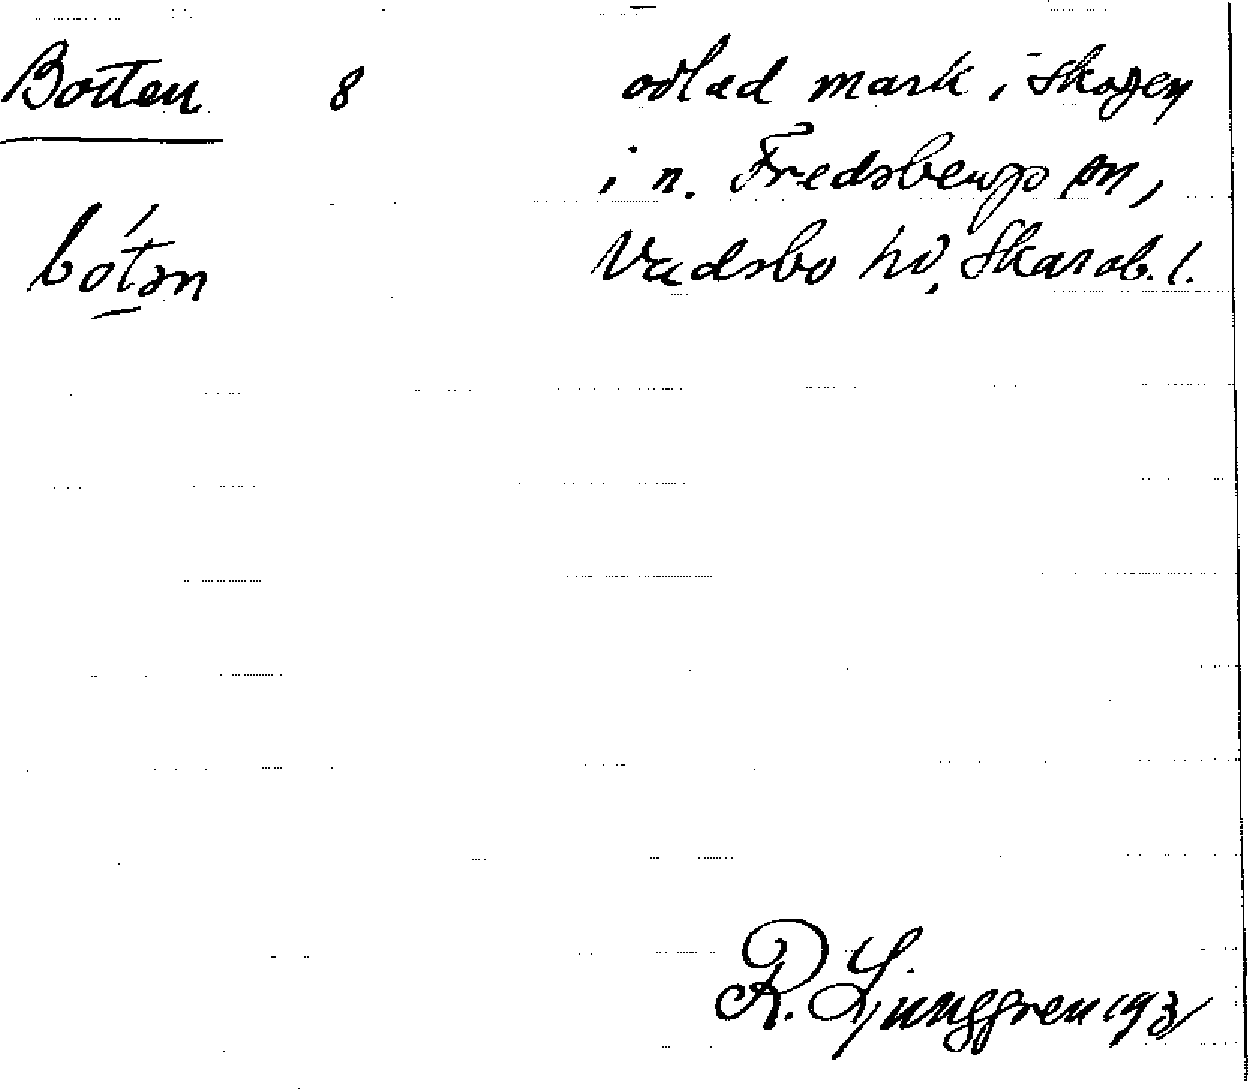 Botten 8 odlad mark i skogen
i n. Fredsbergs sn,
bótən Vadsbo hd, Skarab. l.
R. Ljunggren 193